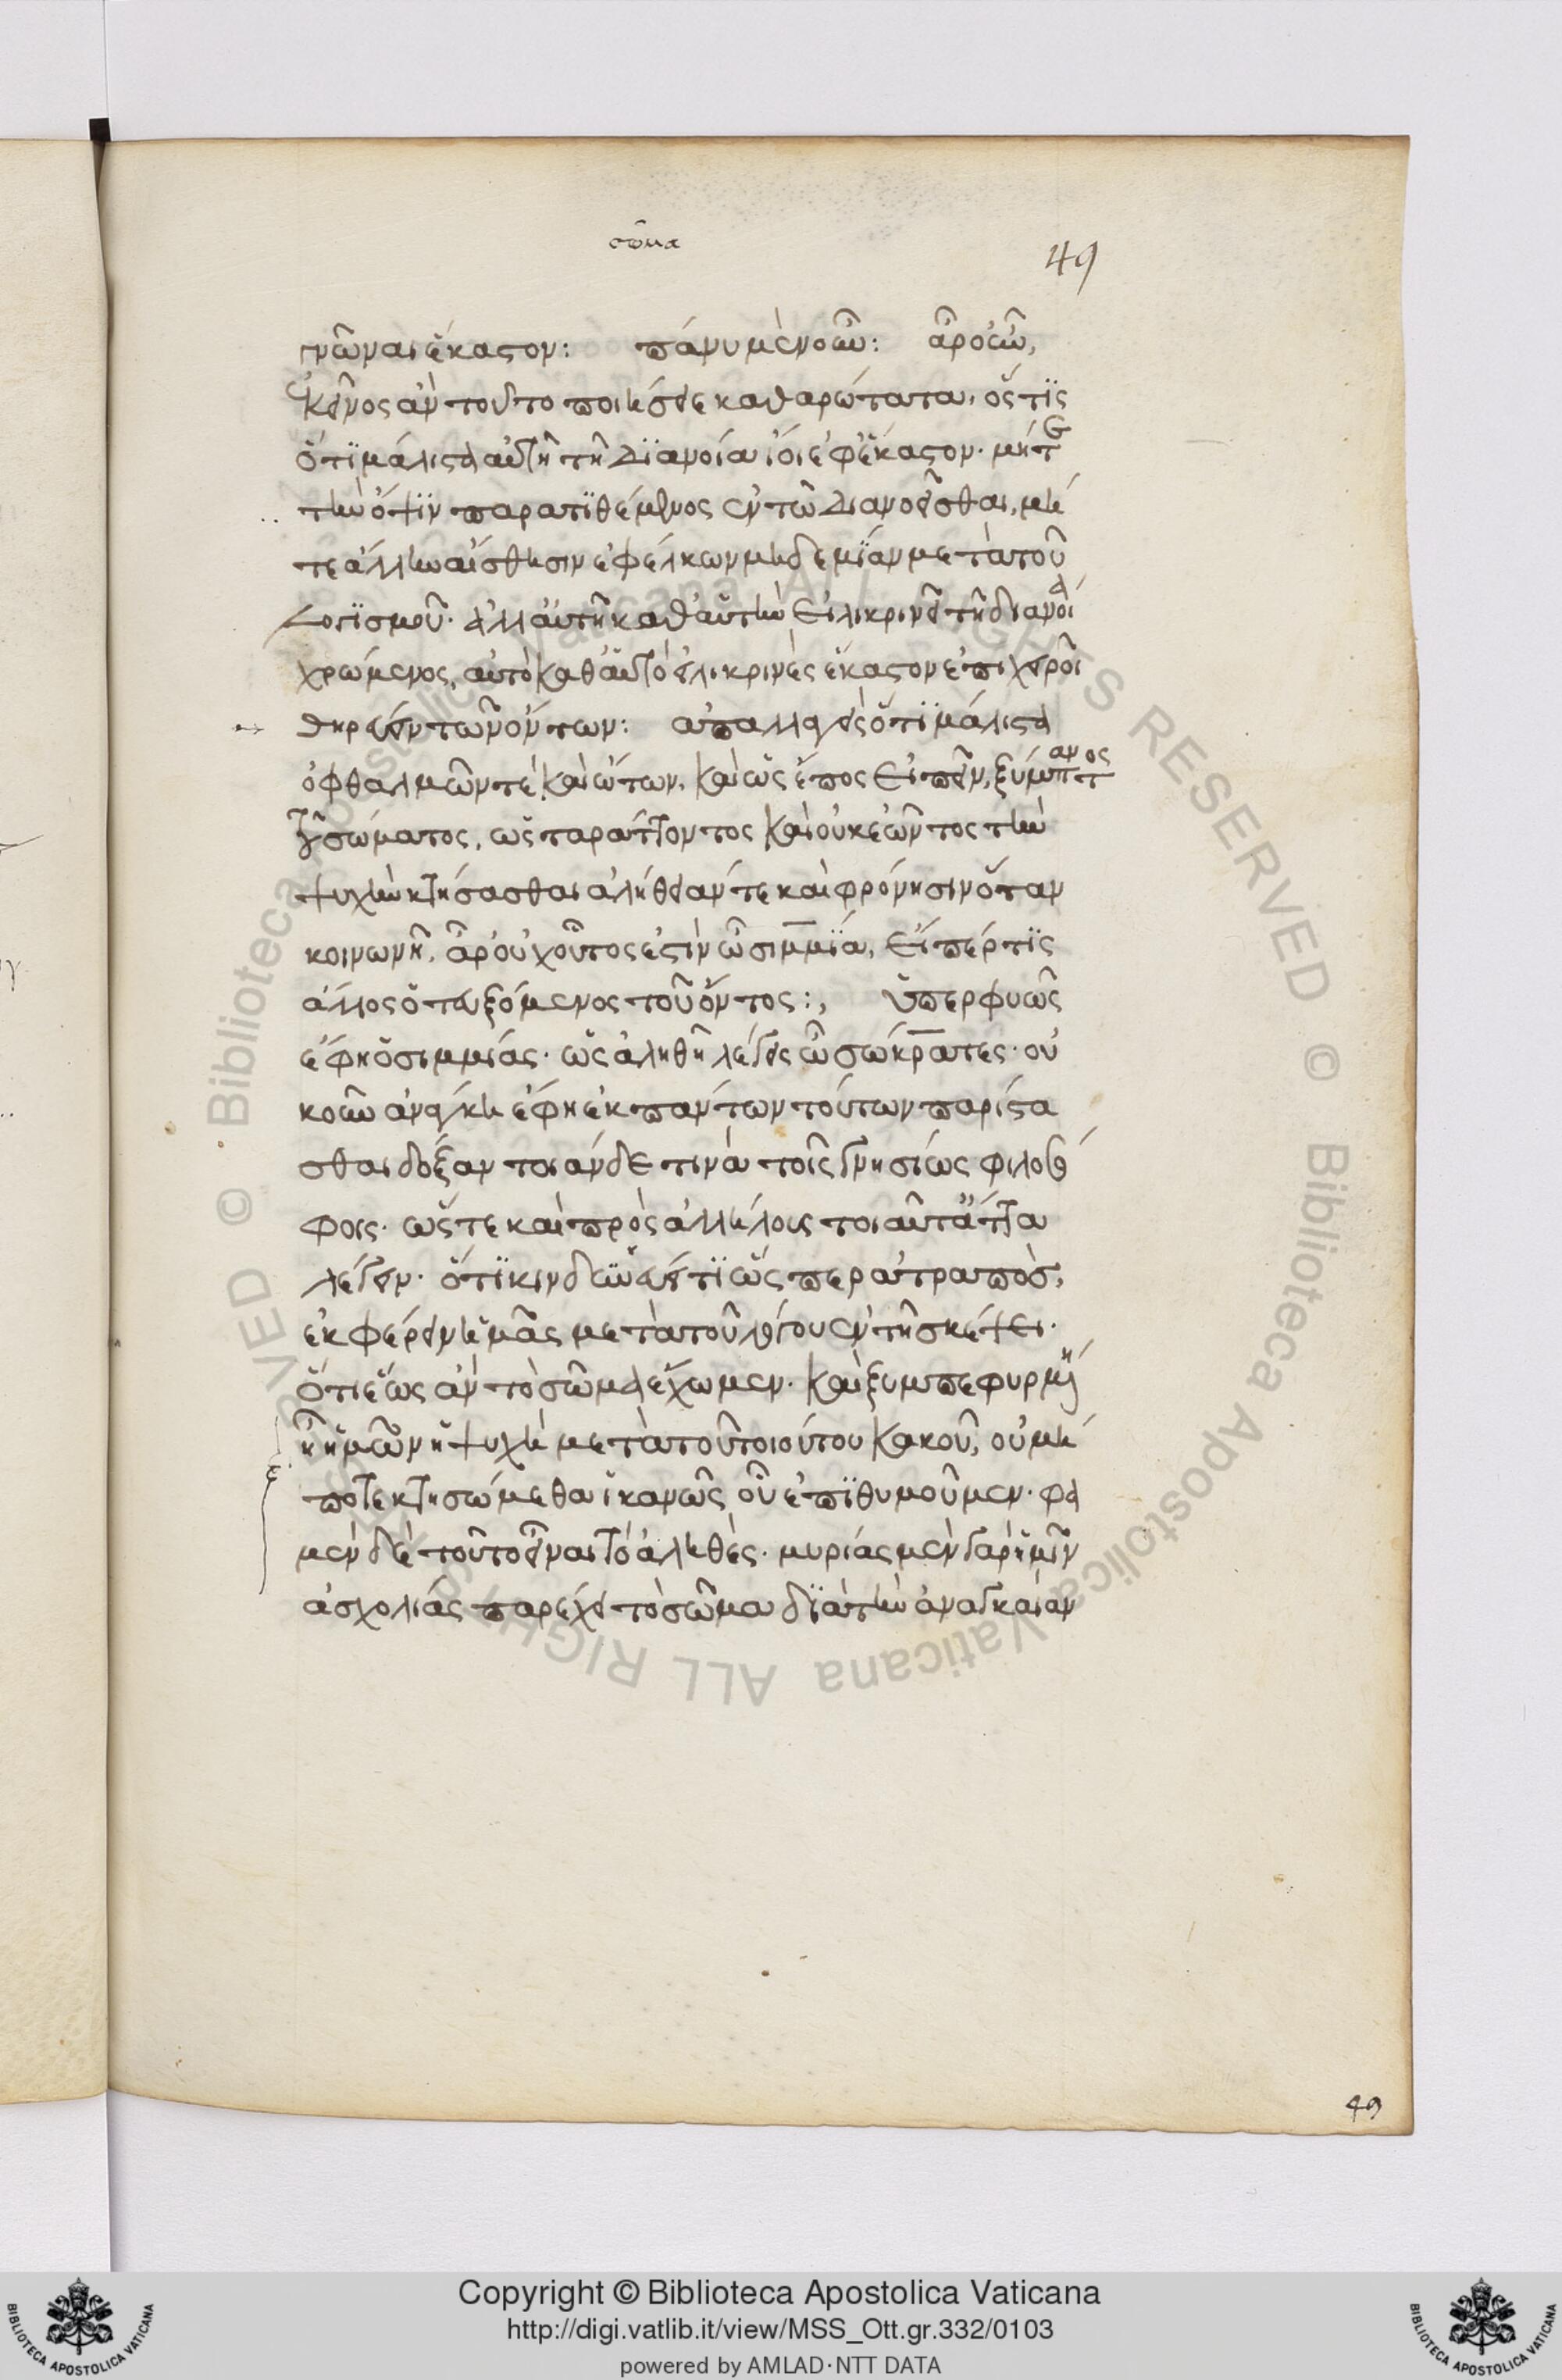 σῶμα
49
γνῶναι ἕκαστον: πάνυ μὲν οὖν: ἆρ' οὖν,
ἐκεῖνος ἂν τοῦτο ποιήσειε καθαρώτατα, ὅστις
ὅτι μάλιστα αὐτῆ τῆ διανοία ἴοι ἐφ' ἕκαστον· μήτε
τὴν ὄψιν παρατιθέμενος ἐν τῶ διανοεῖσθαι, μή
τε ἄλλην αἴσθησιν ἐφέλκων μηδεμίαν μετὰ τοῦ
λογισμοῦ· ἀλλ' αὐτῆ καθ' αὑτὴν εἰλικρινεῖ τῆ διανοία
χρώμενος, αὐτὸ καθ' αὑτὸ εἰλικρινὲς ἕκαστον ἐπιχειροῖ
θηρεύειν τῶν ὄντων: ἀπαλλαγεὶς ὅτι μάλιστα
ὀφθαλμῶν τε καὶ ὤτων, καὶ ὡς ἔπος εἰπεῖν, ξύμπαντος
τοῦ σώματος, ὡς ταράττοντος καὶ οὐκ ἐῶντος τὴν
ψυχὴν κτήσασθαι ἀλήθειάν τε καὶ φρόνησιν ὅταν
κοινωνῆ, ἆρ' οὐχ οὗτος ἐστὶν ὦ σιμμία, εἴπέρ τις
ἄλλος ὁ τευξόμενος τοῦ ὄντος:, ὑπερφυῶς
ἔφη ὁ σιμμίας· ὡς ἀληθῆ λέγεις ὦ σώκρατες· οὐ
κοῦν ἀνάγκη ἔφη ἐκ πάντων τούτων παρίστα
σθαι δόξαν τοιάνδε τινὰ τοῖς γνησίως φιλοσό
φοις· ὥστε καὶ πρὸς ἀλλήλους τοιαῦτα ἄττα
λέγειν· ὅτι κινδυνεύει τι ὥσπερ ἀτραπὸς,
ἐκφέρειν ἡμᾶς μετὰ τοῦ λόγου ἐν τῆ σκέψει·
ὅτι ἕως ἂν τὸ σῶμα ἔχωμεν· καὶ ξυμπεφυρμένη
ἦ ἡμῶν ἡ ψυχὴ μετὰ τοῦ τοιούτου κακοῦ, οὐ μή
ποτε κτησώμεθα ἱκανῶς οὗ ἐπιθυμοῦμεν· φα
μὲν δὲ τοῦτο εἶναι τὸ ἀληθές· μυρίας μὲν γὰρ ἡμῖν
ἀσχολίας παρέχει τὸ σῶμα διὰ τὴν ἀναγκαίαν
49
Copyright © Biblioteca Apostolica Vaticana
http://digi.vatlib.it/view/MSS_Ott.gr.332/0103
powered by AMLAD·NTT DATA
BIBLIOTECA APOSTOLICA VATICANA
BIBLIOTECA APOSTOLICA VATICANA